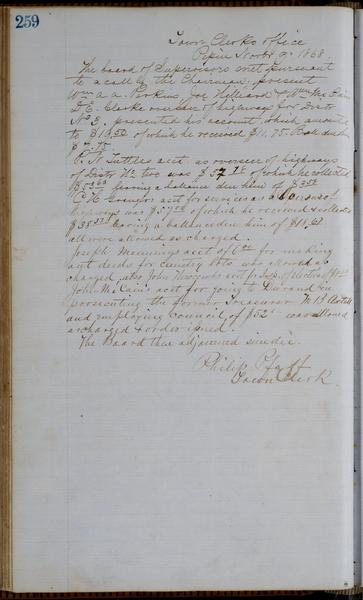 259
Town Clerks office
Pepin Novbr 9th 1868
The board of Supervisors met pursuant
to a call of the Chairman, present
Wm A. A. Perkins, Joe Milliard & Wm Mc Cain
D. E. Clarke overseer of highways for Distr
No 3. presented his account which amounts
to $19.50 of which he received $11.75. Bal. due him
$7.75
R. H. Tuttles acct as overseer of highways
of Distr No two was $ of which he collected
leaving a balance due him of
acct for services as a
highways was of which he received & collected
leaving a balance due him of
all were allowed as charged.
Joseph acct of for making
out deeds for cemetery lots was allowed as
charged, also John acct for
John McCains acct for going to Durand in
prosecuting the former Treasurer M. B. Axtell
and employing Council of $52 was allowed
as charged & order issued.
The Board then adjourned sine die.
Philip Pfaff
Town Clerk